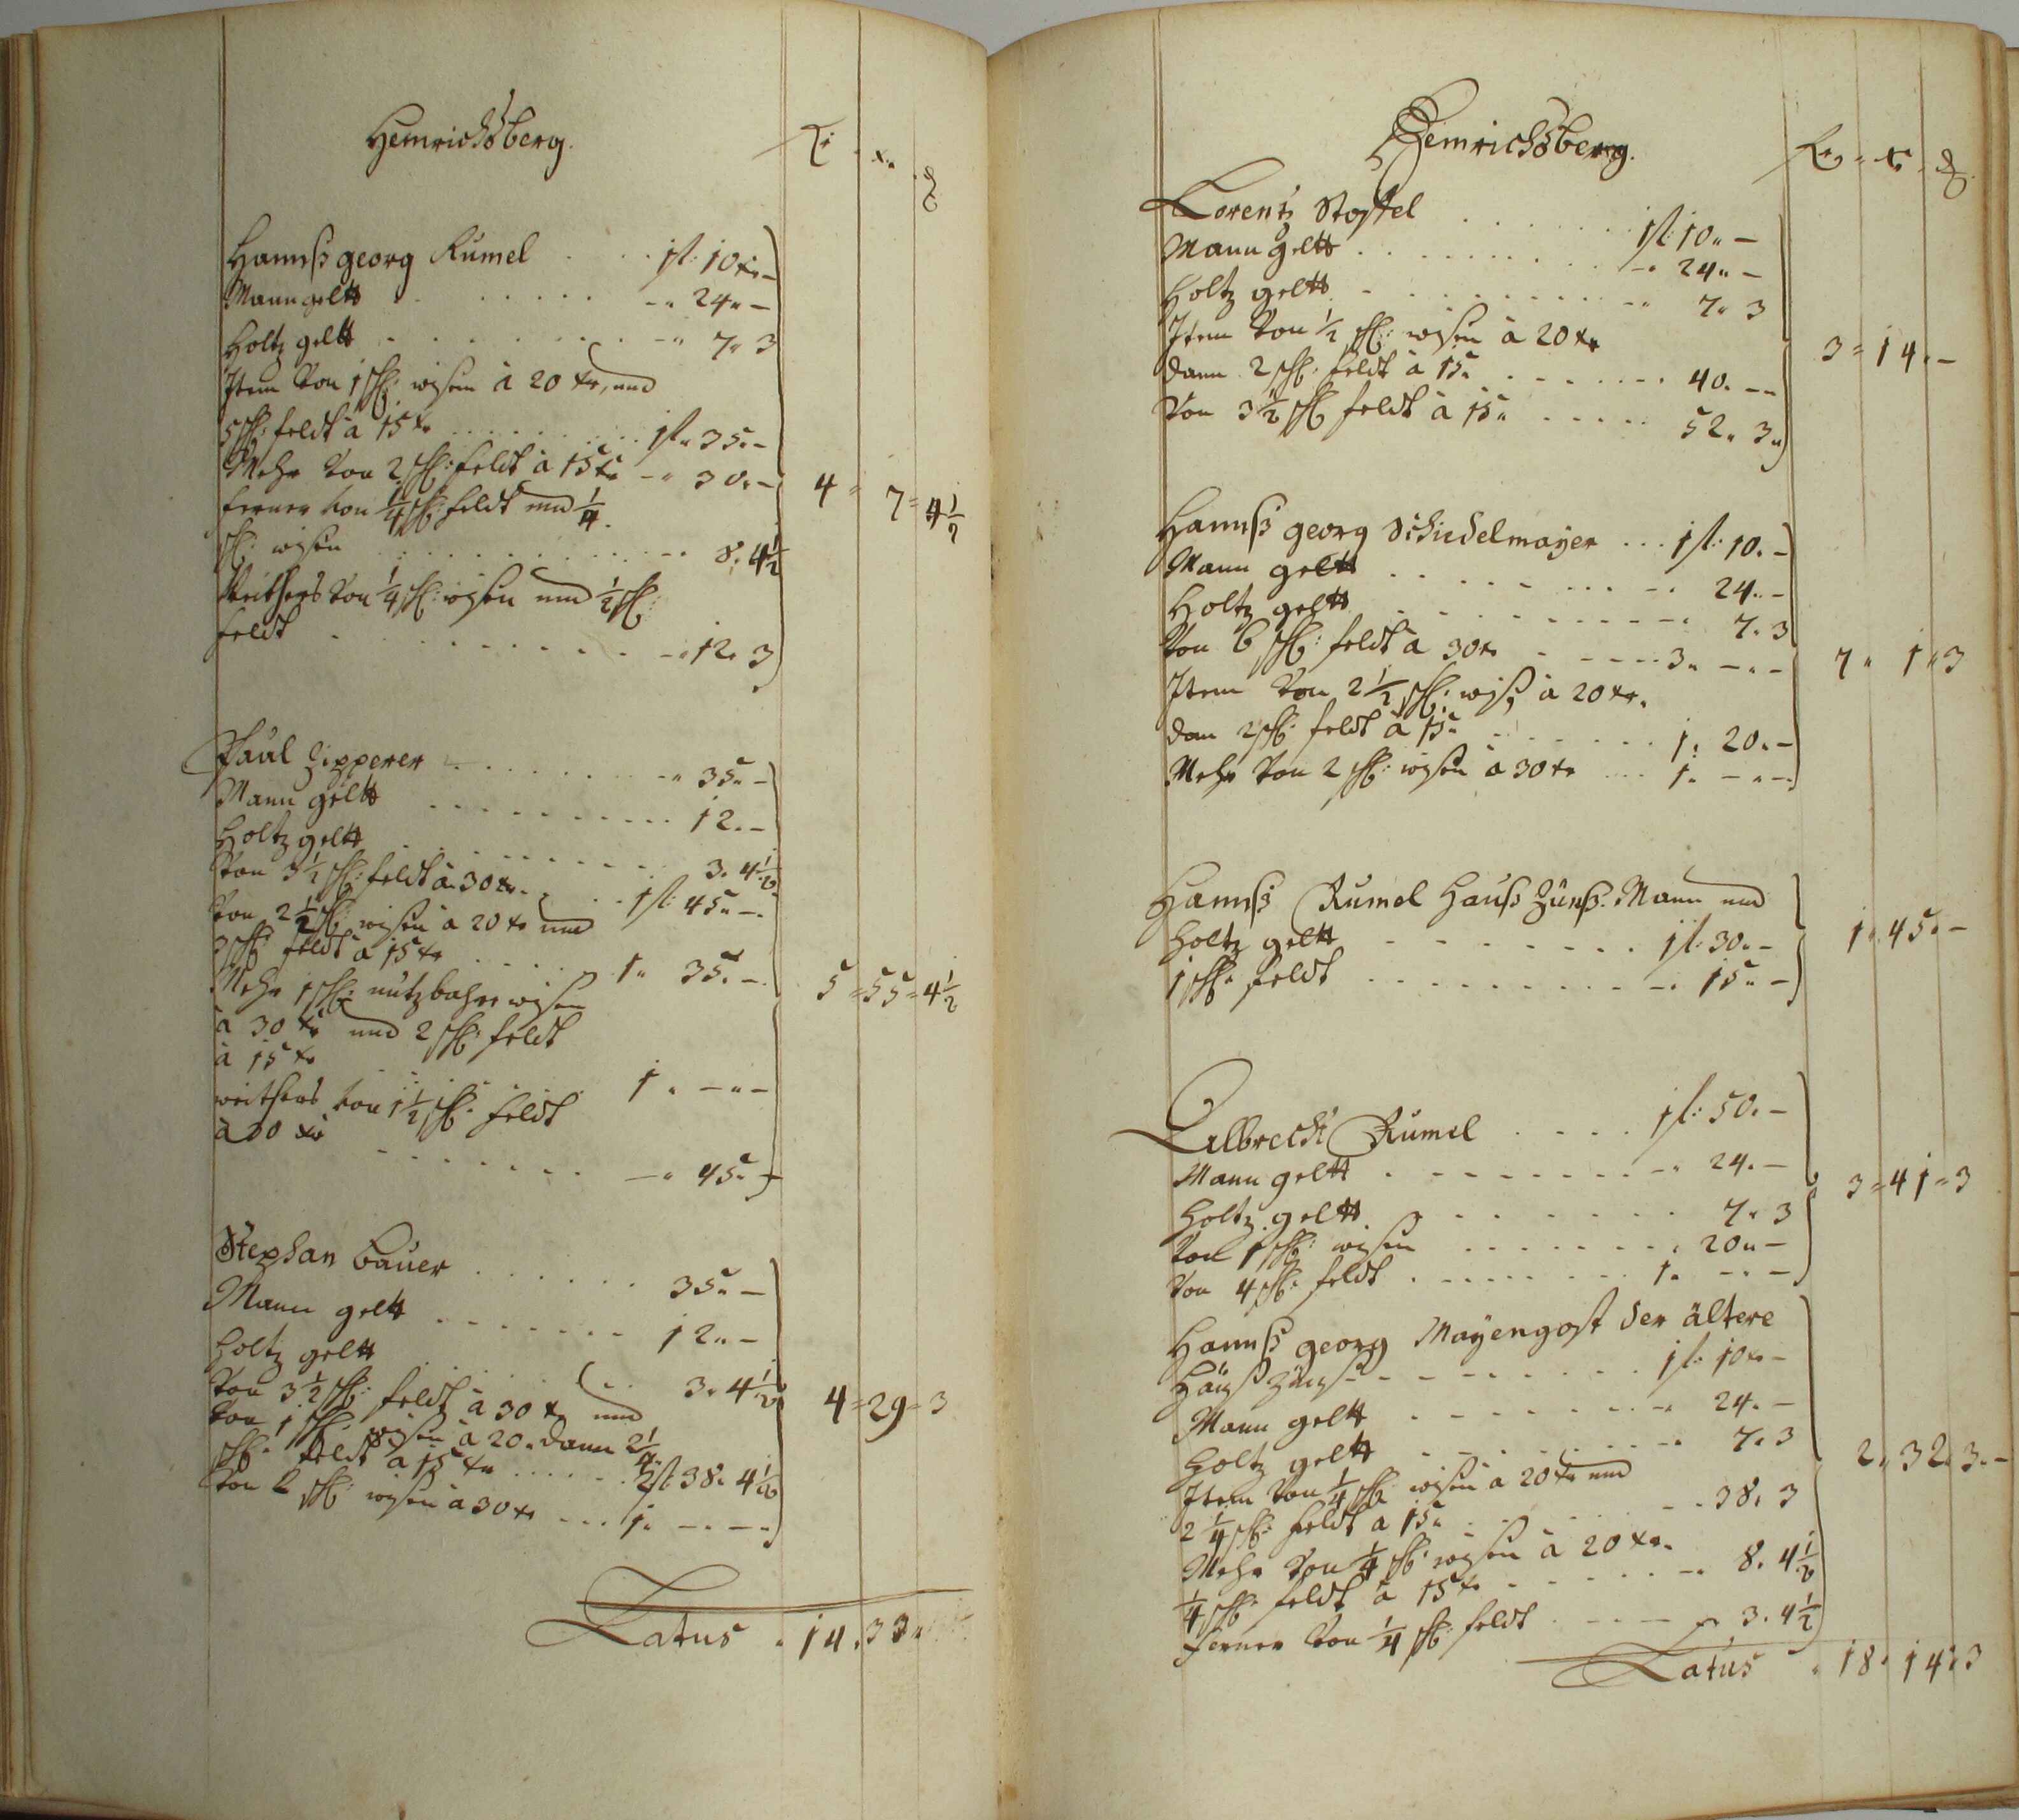 Heinrichsberg.
fl. x. ₰
Hannß georg Rumel . . . 1 fl: 10 x. —
Mann geltt . . . . . . —. 24. —
Holtz geltt . . . . . . —. 7. 3
Item von 1 schl: wisen à 20 xr, und
5 schl: feldt à 15 xr . . . . . 1 fl. 35. —
Mehr von 2 schl: feldt à 15 xr —. 30. —
4 = 7 = 4 1/2
ferner von 1/4 schl: feldt und 1/4
schl: wisen . . . . . . —. 8. 4 1/2
Weithers von 1/4 schl: wisen und 1/2 schl:
feldt . . . . . . —. 12. 3
Paul Zipperer . . . . . —. 35. —
Mann geltt . . . . . . 12. —
Holtz geltt . . . . . . 3. 4 1/2
Von 3 1/2 schl: feldt à 30 xr. . . . 1 fl: 45. —
Von 2 1/2 schl: wisen à 20 xr und
3 schl: feldt à 15 xr . . . . . 1. 35. —
5 = 55 = 4 1/2
Mehr 1 schl: nutzbahre wisen
à 30 xr und 2 schl: feldt
à 15 xr . . . . . . 1. —. —
weithers von 1 1/2 schl: feldt
à 30 xr . . . . . . —. 45. —
Stephan Bauer . . . . . . 35. —
Mann geltt . . . . . . 12. —
Holtz geltt . . . . . . 3. 4 1/2
Von 3 1/2 schl: feldt à 30 x und
4 = 29 = 3
Von 1 schl: wisen à 20. dann 2 1/4
schl: feldt à 15 xr . . . . . 2 fl 38. 4 1/2
Von 2 schl: wisen à 30 xr . . . 1. —. —
Latus . 14. 33.
Heinrichsberg.
fl. = x. ₰
Lorentz Stoffel . . . . . . 1 fl: 10. —
Mann geltt . . . . . . —. 24. —
Holtz geltt . . . . . . —. 7. 3
Item von 1/2 schl: wisen à 20 xr
3 = 14. —
dann 2 schl: feldt à 15. . . . . . 40. —
Von 3 1/2 schl: feldt à 15. . . . . 52. 3.
Hannß georg Schiedelmayer . . . 1 fl: 10. —
Mann geltt . . . . . . —. 24. —
Holtz geltt . . . . . . —. 7. 3
Von 6 schl: feldt à 30 xr . . . . 3. —. —
7. 1. 3
Item von 2 1/2 schl: wiß à 20 xr.
dan 2 schl: feldt à 15. . . . . . 1. 20. —
Mehr von 2 schl: wisen à 30 xr . . . 1. —. —
Hannß Rumel Hauß Zünß. Mann und
Holtz geltt . . . . . . 1 fl: 30. —
1. 45. —
1 schl: feldt . . . . . . —. 15. —
Albrecht Rumel . . . . 1 fl: 50. —
Mann geltt . . . . . . —. 24. —
3 = 41 = 3
Holtz geltt . . . . . . 7. 3
Von 1 schl: wisen . . . . . . 20. —
Von 4 schl: feldt . . . . . . 1. —. —
Hannß georg Mayengost der ältere
Häuß Zünß . . . . . . 1 fl: 10 x. —
Mann geltt . . . . . . —. 24. —
Holtz geltt . . . . . . —. 7. 3
2. 32. 3. —
Item von 1/4 schl: wisen à 20 xr und
2 1/4 schl: feldt à 15. . . . . —. 38. 3
Mehr von 1/4 schl: wisen à 20 xr.
1/4 schl: feldt à 15 xr . . . . . —. 8. 4 1/2
ferner von 1/4 schl: feldt . . . . 3. 4 1/2
Latus . 18. 14. 3